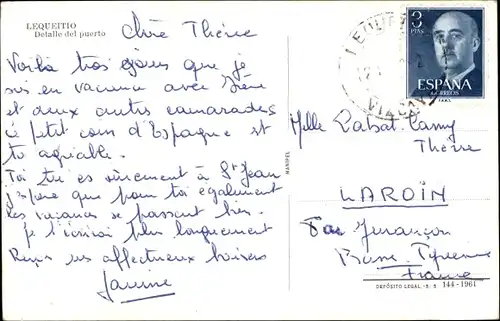 LEQUEITIO
Detalle del puerto
Chère Thérèse
Voilà trois jours que je
suis en vacance avec Irène
et deux autres camarades
ce petit coin d'Espagne est
ts agréable.
Toi tu es sûrement à St Jean
j'espère que pour toi également
les vacances se passent bien.
Je t'écrirai plus longuement
Reçois mes affectueux baisers
Janine
3
PTAS
ESPAÑA
CORREOS
Melle Labat-Camy
Thérèse
LAROIN
Par Jurançon
Basses Pyrénées
France
HANIPEL
DEPÓSITO LEGAL - S. S. 144-1961